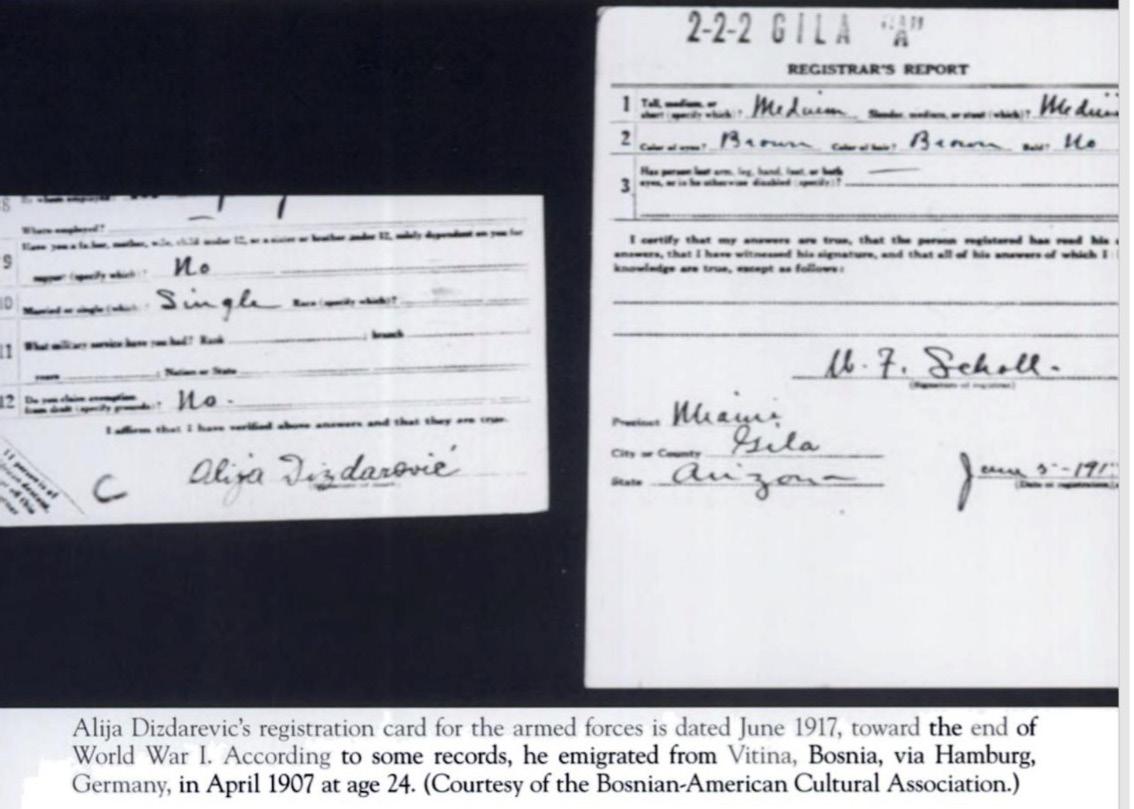 8
Where employed?
9 Have you a father, mother, wife, child under 12, or a sister or brother under 12, solely dependent on you for
support (specify which)? No
10 Married or single (which)? Single Race (specify which)?
11 What military service have you had? Rank ; branch
years ; Nation or State
12 Do you claim exemption
from draft (specify grounds)? No.
I affirm that I have verified above answers and that they are true.
C Alija Dizdarović
2-2-2 GILA "A"
REGISTRAR'S REPORT
1 Tall, medium, or
short (specify which)? Medium Slender, medium, or stout (which)? Mediu
2 Color of eyes? Brown Color of hair? Brown Bald? No
3 Has person lost arm, leg, hand, foot, or both
eyes, or is he otherwise disabled (specify)?
I certify that my answers are true, that the person registered has read his
answers, that I have witnessed his signature, and that all of his answers of which I
knowledge are true, except as follows:
F. Scholl.
(Signature of registrar)
Precinct Miami
City or County Gila
State Arizona
June 5-191
(Date of registration)
Alija Dizdarevic's registration card for the armed forces is dated June 1917, toward the end of
World War I. According to some records, he emigrated from Vitina, Bosnia, via Hamburg,
Germany, in April 1907 at age 24. (Courtesy of the Bosnian-American Cultural Association.)